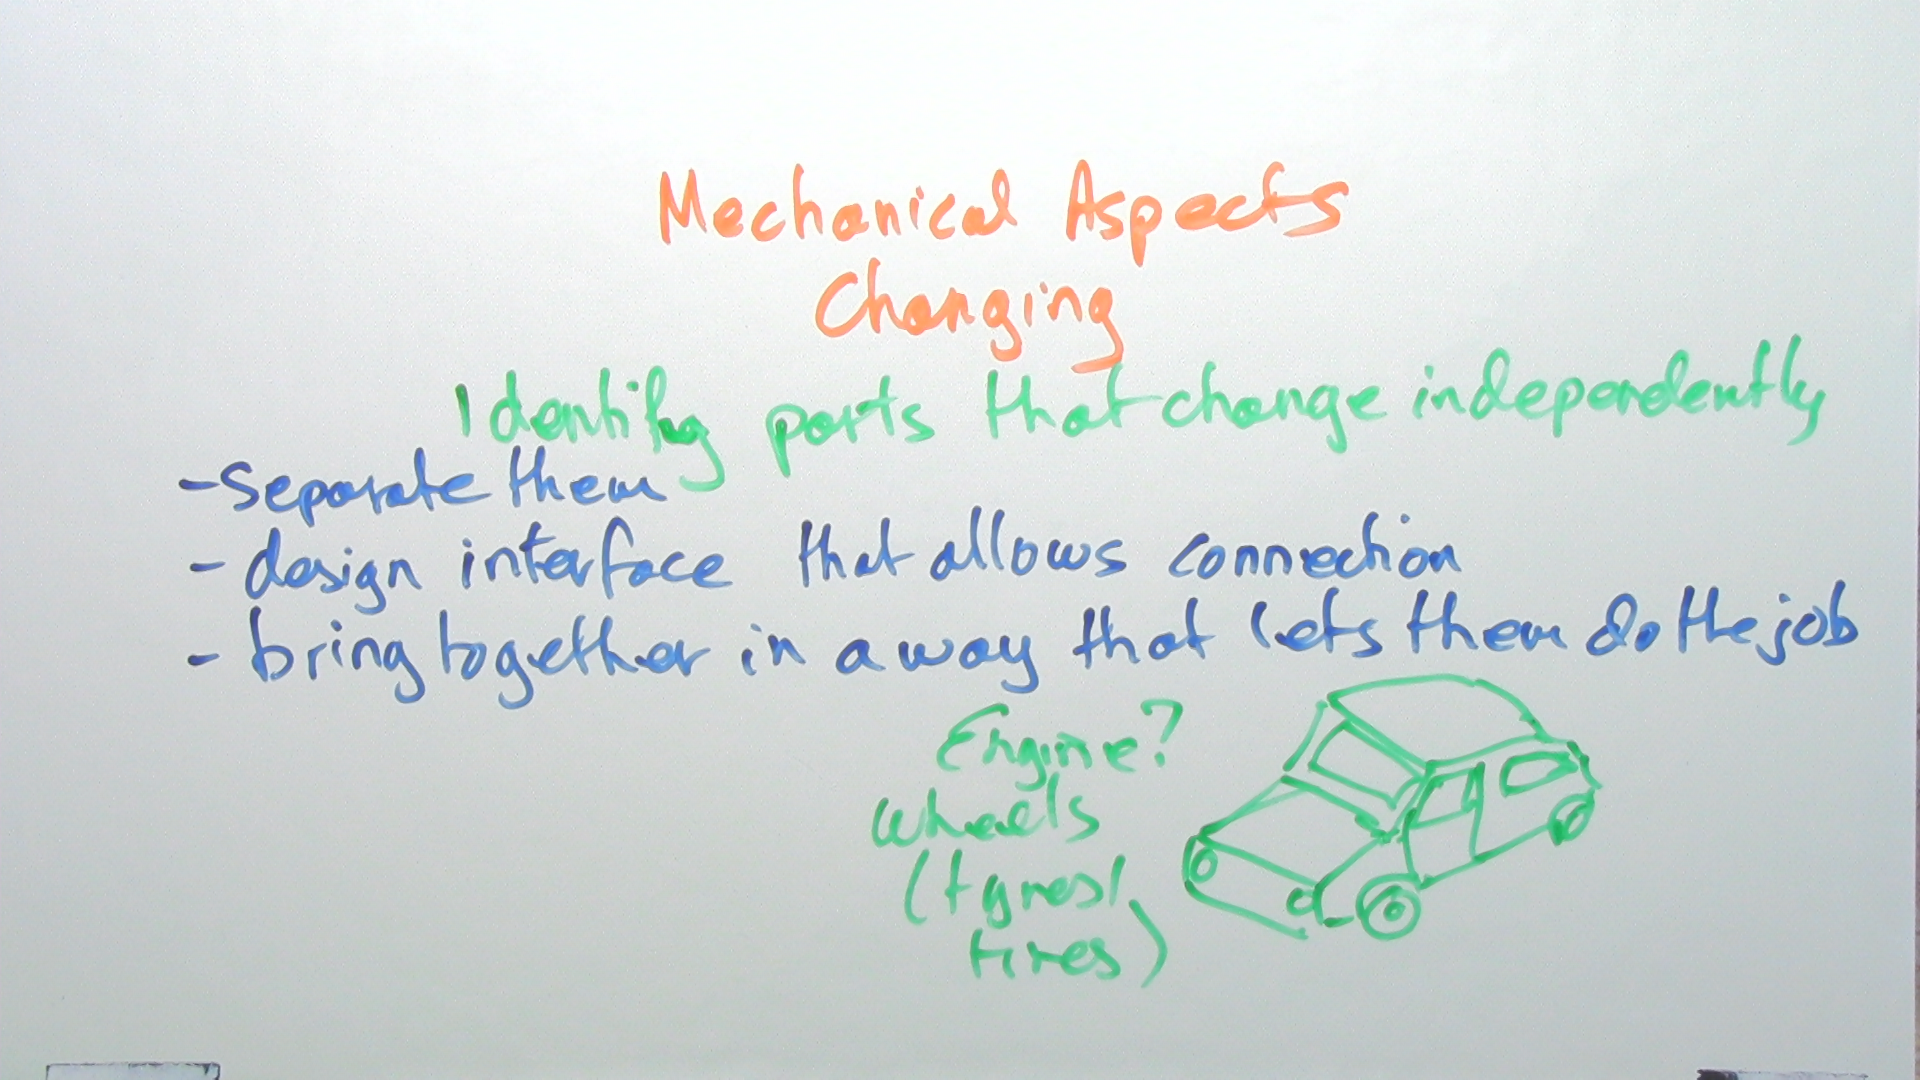 Mechanical Aspects
Changing
Identify parts that change independently
- separate them
- design interface that allows connection
- bring together in a way that lets them do the job
Engine?
wheels
(tyres/
tires)